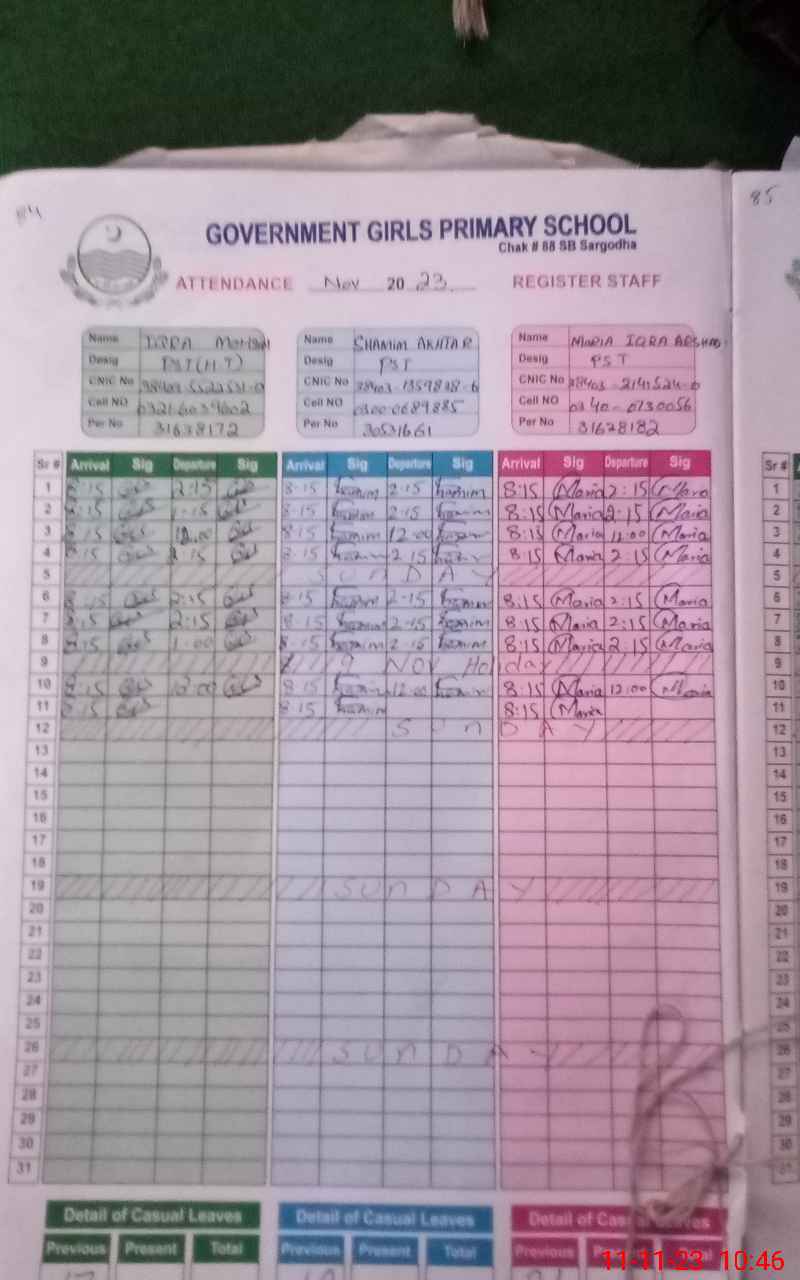 84
85
GOVERNMENT GIRLS PRIMARY SCHOOL
Chak # 88 SB Sargodha
ATTENDANCE Nov 2023 REGISTER STAFF
Name IQRA Name SHAMIM AKHTAR Name MARIA IQRA ARSHAD
Desig PST(H.T) Desig PST Desig PST
CNIC No CNIC No CNIC No
Cell NO Cell NO 0300-0689885 Cell NO 0340-0730056
Per No 31638172 Per No 30531661 Per No 31628182
Sr # Arrival Sig Departure Sig Arrival Sig Departure Sig Arrival Sig Departure Sig Sr #
1 8:15 2:15 8:15 2:15 8:15 Maria 2:15 Maria 1
2 8:15 1:15 8:15 2:15 8:15 Maria 2:15 Maria 2
3 8:15 12:00 8:15 12:00 8:15 Maria 12:00 Maria 3
4 8:15 2:15 8:15 2:15 8:15 Maria 2:15 Maria 4
5 SUNDAY 5
6 8:15 2:15 8:15 2:15 8:15 Maria 2:15 Maria 6
7 8:15 2:15 8:15 2:15 8:15 Maria 2:15 Maria 7
8 8:15 1:00 8:15 2:15 8:15 Maria 2:15 Maria 8
9 9 Nov Holiday 9
10 8:15 12:00 8:15 12:00 8:15 Maria 12:00 Maria 10
11 8:15 8:15 8:15 Maria 11
12 SUNDAY 12
13 13
14 14
15 15
16 16
17 17
18 18
19 SUNDAY 19
20 20
21 21
22 22
23 23
24 24
25 25
26 SUNDAY 26
27 27
28 28
29 29
30 30
31 31
Detail of Casual Leaves Detail of Casual Leaves Detail of Casual Leaves
Previous Present Total Previous Present Total Previous
11-11-23 10:46